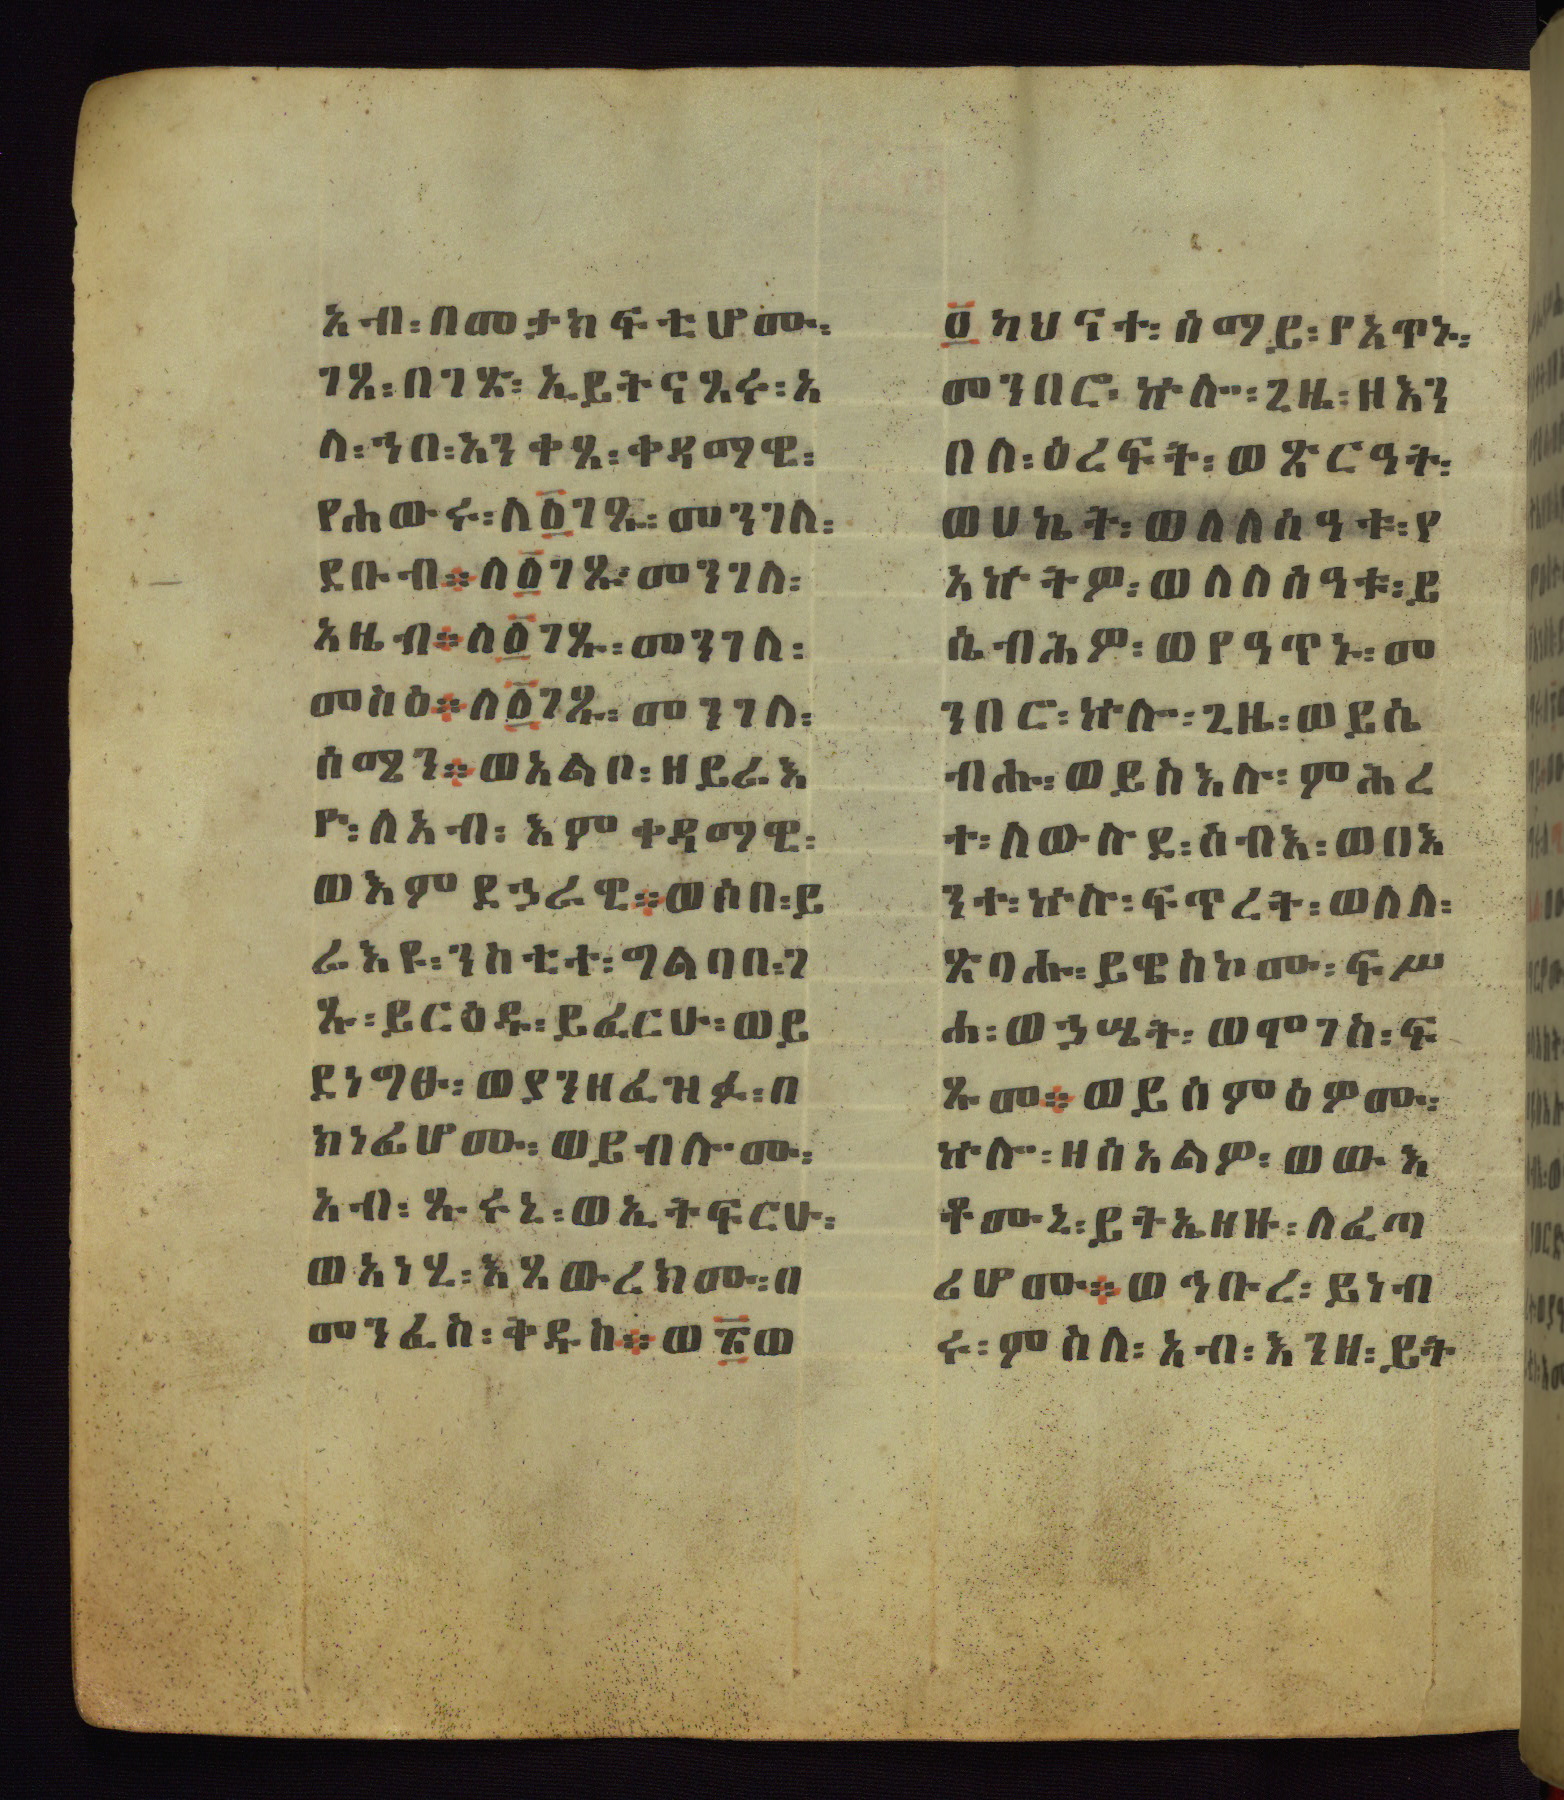 አብ፡በመታክፍቲሆሙ፡
ገጸ፡በገጽ፡ኢይትናጸሩ፡አ
ላ፡ኀበ፡አንቀጸ፡ቀዳማዊ፡
የሐውሩ፡ለ፩ገጹ፡መንገለ፡
ደቡብ።ለ፩ገጹ፡መንገለ፡
አዜብ።ለ፩ገጹ፡መንገለ፡
መስዕ።ለ፩ገጹ፡መንገለ፡
ሰሜን።ወአልቦ፡ዘይሬእ
ዮ፡ለአብ፡እምቀዳማዊ፡
ወእምደኃራዊ።ወሶበ፡ይ
ሬእዩ፡ንስቲተ፡ግልባቤ፡ገ
ጹ፡ይርዕዱ፡ይፈርሁ፡ወይ
ደነግፁ፡ወያንዘፈዝፉ፡በ
ክነፊሆሙ፡ወይብሎሙ፡
አብ፡ጹሩኒ፡ወኢትፍርሁ፡
ወአነሂ፡እጸውረክሙ፡በ
መንፈስ፡ቅዱስ።ወ፳ወ
፬ካህናተ፡ሰማይ፡የአጥኑ፡
መንበሮ፡ኵሎ፡ጊዜ፡ዘእን
በለ፡ዕረፍት፡ወጽርዓት፡
ወሀኬት፡ወለለሰዓቱ፡የ
አኵትዎ፡ወለለሰዓቱ፡ይ
ሴብሕዎ፡ወየዓጥኑ፡መ
ንበሮ፡ኵሎ፡ጊዜ፡ወይሴ
ብሑ፡ወይስእሉ፡ምሕረ
ተ፡ለውሉደ፡ሰብእ፡ወበእ
ንተ፡ኵሉ፡ፍጥረት፡ወለለ፡
ጽባሑ፡ይዌስኮሙ፡ፍሥ
ሐ፡ወኃሤት፡ወሞገስ፡ፍ
ጹመ።ወይሰምዕዎሙ፡
ኵሎ፡ዘሰአልዎ፡ወውእ
ቶሙኒ፡ይትኤዘዙ፡ለፈጣ
ሪሆሙ።ወኅቡረ፡ይነብ
ሩ፡ምስለ፡አብ፡እንዘ፡ይት